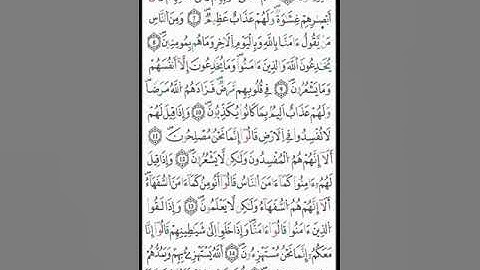 أَبْصَٰرِهِمْ غِشَٰوَةٌ وَلَهُمْ عَذَابٌ عَظِيمٌ وَمِنَ ٱلنَّاسِ
مَنْ يَّقُولُ ءَامَنَّا بِاللَّهِ وَبِالْيَوْمِ ٱلَاخِرِ وَمَا هُم بِمُومِنِينَ
يُخَٰدِعُونَ ٱللَّهَ وَالذِينَ ءَامَنُوا وَمَا يُخَٰدِعُونَ إِلَّا أَنفُسَهُمْ
وَمَا يَشْعُرُونَ فِے قُلُوبِهِم مَّرَضٌ فَزَادَهُمُ ٱللَّهُ مَرَضاً
وَلَهُمْ عَذَابٌ اَلِيمٌ بِمَا كَانُوا يُكَذِّبُونَ وَإِذَا قِيلَ لَهُمْ
لَا تُفْسِدُوا فِے اِلَارْضِ قَالُوا إِنَّمَا نَحْنُ مُصْلِحُونَ
أَلَا إِنَّهُمْ هُمُ ٱلْمُفْسِدُونَ وَلَٰكِن لَّا يَشْعُرُونَ وَإِذَا قِيلَ
لَهُمْ ءَامِنُوا كَمَا ءَامَنَ ٱلنَّاسُ قَالُوا أَنُومِنُ كَمَا ءَامَنَ ٱلسُّفَهَاءُ
أَلَا إِنَّهُمْ هُمُ ٱلسُّفَهَاءُ وَلَٰكِن لَّا يَعْلَمُونَ وَإِذَا لَقُوا
ٱلذِينَ ءَامَنُوا قَالُوا ءَامَنَّا وَإِذَا خَلَوِا اِلَىٰ شَيَٰطِينِهِمْ قَالُوا إِنَّا
مَعَكُمْ إِنَّمَا نَحْنُ مُسْتَهْزِءُونَ ٱللَّهُ يَسْتَهْزِئُ بِهِمْ وَيَمُدُّهُمْ